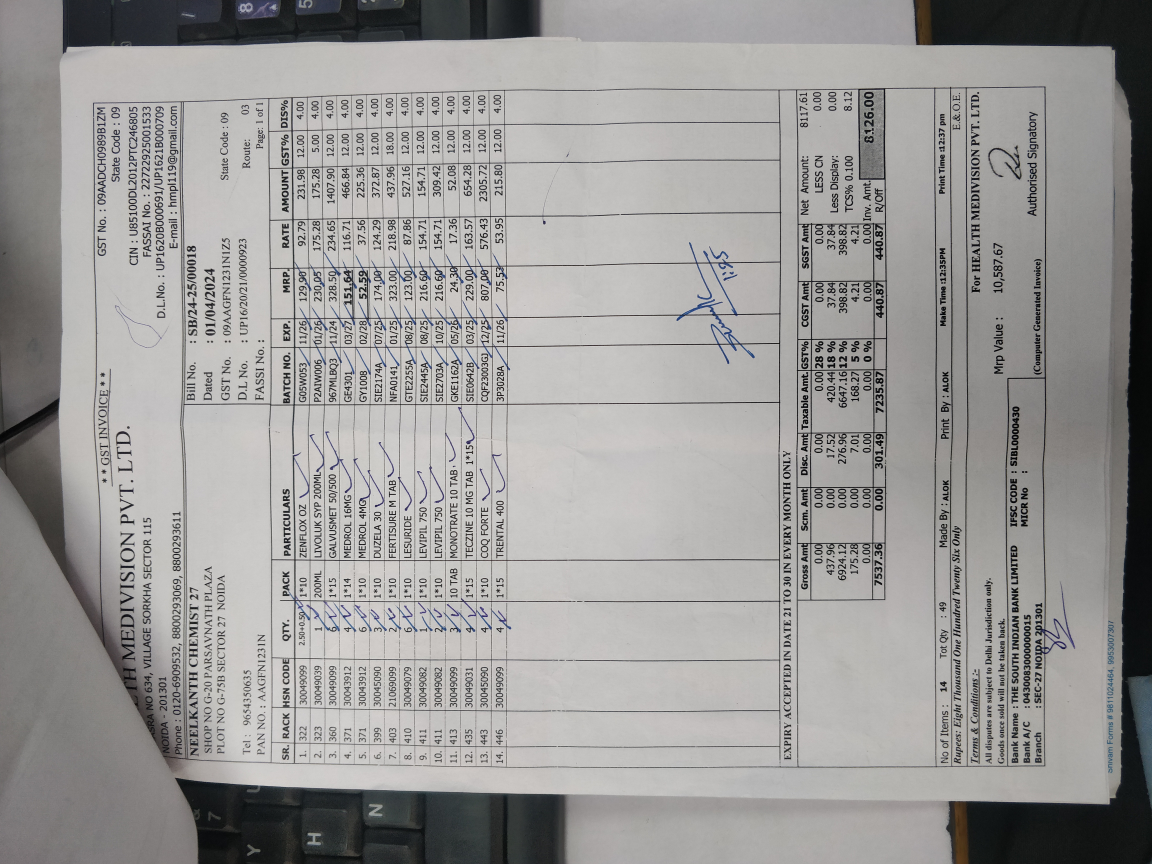 * * GST INVOICE * *
TH MEDIVISION PVT. LTD.
GST No. : 09AADCH0989B1ZM
State Code : 09
NO 634, VILLAGE SORKHA SECTOR 115
CIN : U85100DL2012PTC246805
NOIDA - 201301
FASSAI No. : 2272925001533
D.L.No. : UP1620B000691/UP1621B000709
Phone : 0120-6909532, 8800293069, 8800293611
E-mail : hmpl119@gmail.com
NEELKANTH CHEMIST 27
SHOP NO G-20 PARSAVNATH PLAZA
PLOT NO G-75B SECTOR 27 NOIDA
Tel : 9654350635
PAN NO. : AAGFN1231N
Bill No. : SB/24-25/00018
Dated : 01/04/2024
GST No. : 09AAGFN1231N1Z5 State Code : 09
D.L No. : UP16/20/21/0000923 Route: 03
FASSI No. : Page: 1 of 1
SR. RACK HSN CODE QTY. PACK PARTICULARS BATCH NO. EXP. MRP. RATE AMOUNT GST% DIS%
1. 322 30049099 2.50+0.50 1*10 ZENFLOX OZ G05W053 11/26 129.90 92.79 231.98 12.00 4.00
2. 323 30049039 1 200ML LIVOLUK SYP 200ML P2AIW006 01/26 230.05 175.28 175.28 5.00 4.00
3. 360 30049099 6 1*15 GALVUSMET 50/500 967MLBQ3 11/24 328.50 234.65 1407.90 12.00 4.00
4. 371 30043912 4 1*14 MEDROL 16MG GE4301 03/27 151.64 116.71 466.84 12.00 4.00
5. 371 30043912 6 1*10 MEDROL 4MG GY1008 02/28 52.59 37.56 225.36 12.00 4.00
6. 399 30045090 3 1*10 DUZELA 30 SIE2174A 07/25 174.00 124.29 372.87 12.00 4.00
7. 403 21069099 2 1*10 FERTISURE M TAB NFA0141 01/25 323.00 218.98 437.96 18.00 4.00
8. 410 30049079 6 1*10 LESURIDE GTE2255A 08/25 123.00 87.86 527.16 12.00 4.00
9. 411 30049082 1 1*10 LEVIPIL 750 SIE2445A 08/25 216.60 154.71 154.71 12.00 4.00
10. 411 30049082 2 1*10 LEVIPIL 750 SIE2703A 10/25 216.60 154.71 309.42 12.00 4.00
11. 413 30049099 3 10 TAB MONOTRATE 10 TAB GKE1162A 05/26 24.30 17.36 52.08 12.00 4.00
12. 435 30049031 4 1*15 TECZINE 10 MG TAB 1*15 SIE0642B 03/25 229.00 163.57 654.28 12.00 4.00
13. 443 30045090 4 1*10 COQ FORTE CQF23003GJ 12/25 807.00 576.43 2305.72 12.00 4.00
14. 446 30049099 4 1*15 TRENTAL 400 3P3028A 11/26 75.53 53.95 215.80 12.00 4.00
1:95
EXPIRY ACCEPTED IN DATE 21 TO 30 IN EVERY MONTH ONLY
Gross Amt Scm. Amt Disc. Amt Taxable Amt. GST% CGST Amt SGST Amt Net Amount: 8117.61
0.00 0.00 0.00 0.00 28 % 0.00 0.00 LESS CN 0.00
437.96 0.00 17.52 420.44 18 % 37.84 37.84 Less Display: 0.00
6924.12 0.00 276.96 6647.16 12 % 398.82 398.82 TCS% 0.100 8.12
175.28 0.00 7.01 168.27 5 % 4.21 4.21
0.00 0.00 0.00 0.00 0 % 0.00 0.00 Inv. Amt. 8126.00
7537.36 0.00 301.49 7235.87 440.87 440.87 R/Off
No of Items : 14 Tot Qty : 49 Made By : ALOK Print By : ALOK Make Time :12:35PM Print Time :12:37 pm
Rupees: Eight Thousand One Hundred Twenty Six Only E.& O.E.
Terms & Conditions :-
All disputes are subject to Delhi Jurisdiction only.
Goods once sold will not be taken back.
Mrp Value : 10,587.67
For HEALTH MEDIVISION PVT. LTD.
Bank Name : THE SOUTH INDIAN BANK LIMITED IFSC CODE : SIBL0000430
Bank A/C : 0430083000000015 MICR No :
Branch : SEC-27 NOIDA 201301
(Computer Generated Invoice)
Authorised Signatory
Shivam Forms # 9811024464, 9953007307